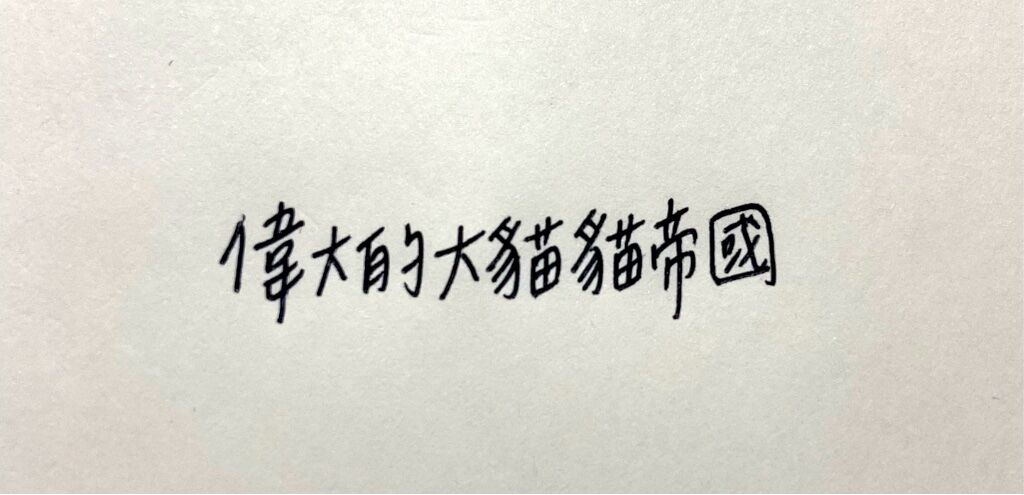 偉大的大貓貓帝國